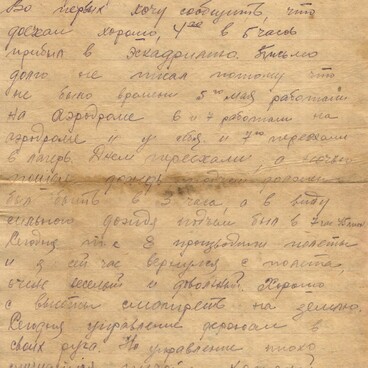 Во первых хочу сообщить, что
доехал хорошо, 4го в 5 часов
прибыл в эскадрилью. Письмо
долго не писал потому что
не было времени 5го мая работали
на аэродроме 6 и 7 работали на
аэродроме и у себя. и 7го переехали
в лагерь. Днем переехали, а ночью
дождь
был быть в 3 часа, а в виду
сильного дождя подъем был в 7 час
Сегодня т.е 8 производили полеты
и я сейчас вернулся с полета,
очень веселый и довольный. Хорошо
с высоты смотреть на землю.
Сегодня управление держал в
своих руках. Но управление плохо